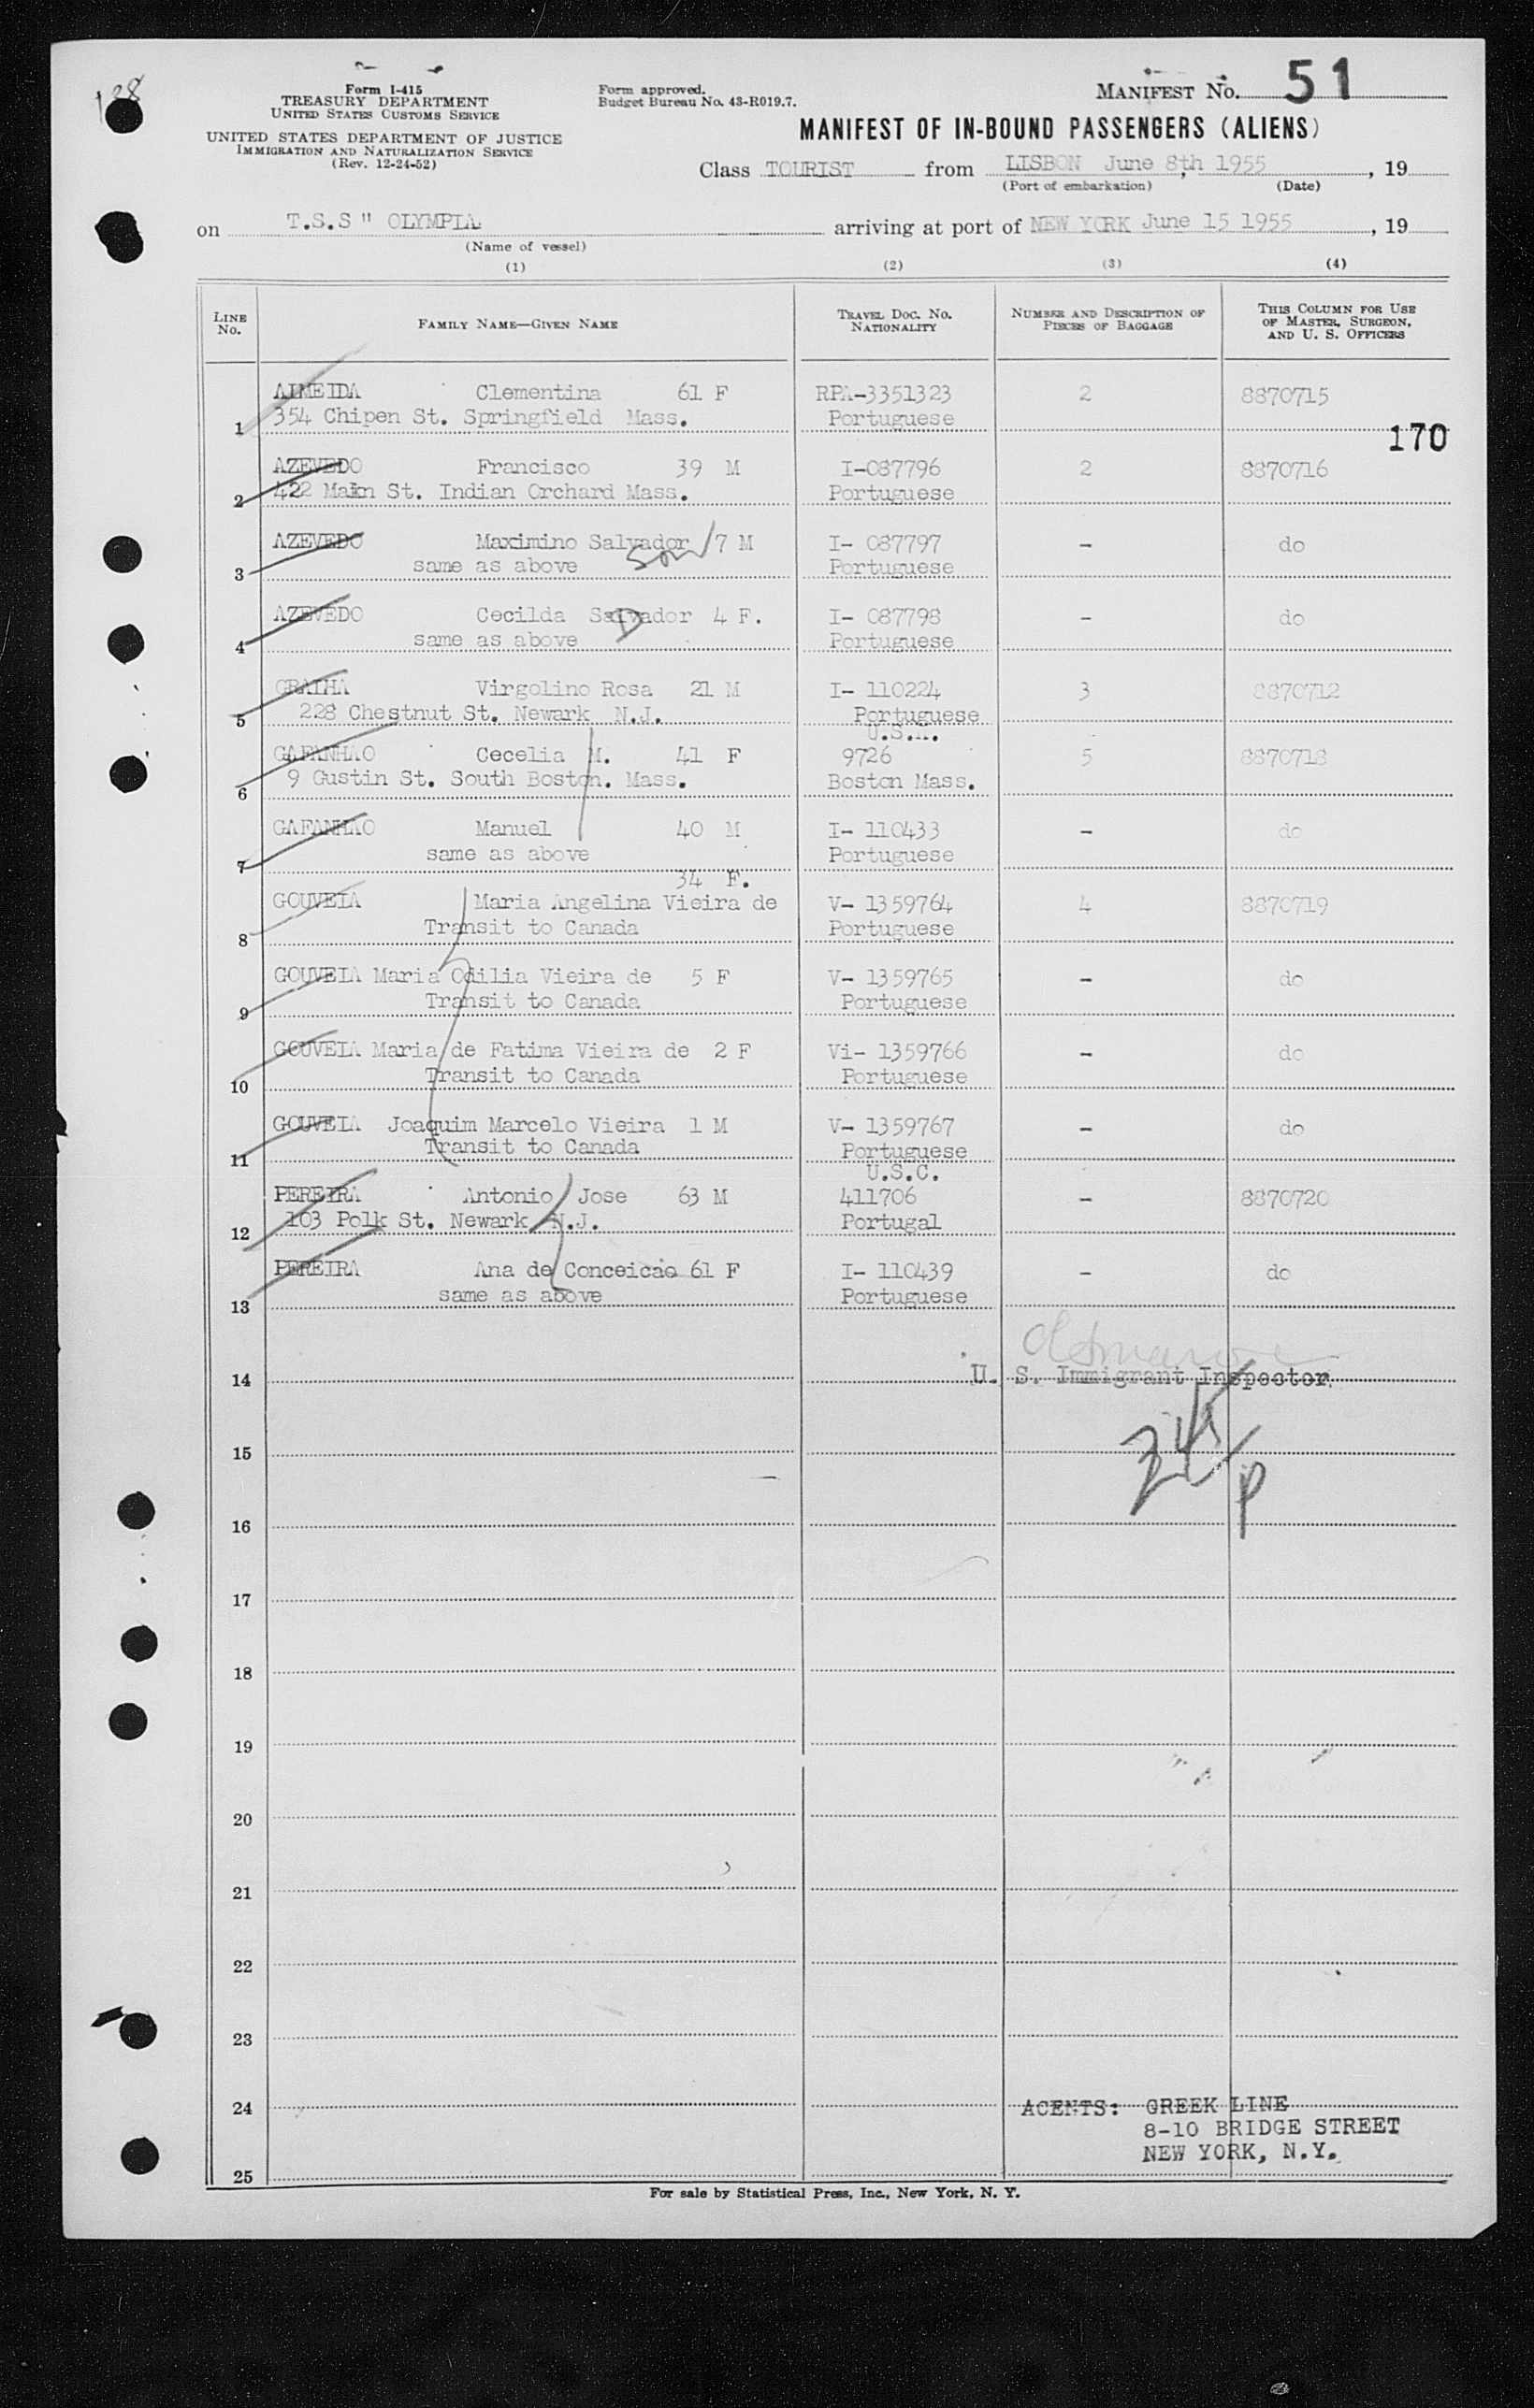 138
Form I-415
TREASURY DEPARTMENT
UNITED STATES CUSTOMS SERVICE
UNITED STATES DEPARTMENT OF JUSTICE
IMMIGRATION AND NATURALIZATION SERVICE
(Rev. 12-24-52)
Form approved.
Budget Bureau No. 43-R019.7.
MANIFEST NO. 51
MANIFEST OF IN-BOUND PASSENGERS (ALIENS)
Class TOURIST from LISBON June 8th 1955, 19
(Port of embarkation) (Date)
on T.S.S " OLYMPIA arriving at port of NEW YORK June 15 1955, 19
(Name of vessel)
(1) (2) (3) (4)
LINE No. FAMILY NAME—GIVEN NAME TRAVEL DOC. NO. NATIONALITY NUMBER AND DESCRIPTION OF PIECES OF BAGGAGE THIS COLUMN FOR USE OF MASTER, SURGEON, AND U. S. OFFICERS
ALMEIDA Clementina 61 F RPA-3351323 2 8870715
1 354 Chipen St. Springfield Mass. Portuguese
170
AZEVEDO Francisco 39 M I-087796 2 8870716
2 422 Main St. Indian Orchard Mass. Portuguese
AZEVEDO Maximino Salvador 7 M I- 087797 - do
3 same as above son Portuguese
AZEVEDO Cecilda Salvador 4 F. I- 087798 - do
4 same as above D Portuguese
GRALHA Virgolino Rosa 21 M I- 110224 3 8870712
5 228 Chestnut St. Newark N.J. Portuguese
U.S.A.
GAFANHAO Cecelia M. 41 F 9726 5 8870718
6 9 Gustin St. South Boston. Mass. Boston Mass.
GAFANHAO Manuel 40 M I- 110433 - do
7 same as above Portuguese
34 F.
GOUVEIA Maria Angelina Vieira de V- 1359764 4 8870719
8 Transit to Canada Portuguese
GOUVEIA Maria Odilia Vieira de 5 F V- 1359765 - do
9 Transit to Canada Portuguese
GOUVEIA Maria de Fatima Vieira de 2 F Vi- 1359766 - do
10 Transit to Canada Portuguese
GOUVEIA Joaquim Marcelo Vieira 1 M V- 1359767 - do
11 Transit to Canada Portuguese
U.S.C.
PEREIRA Antonio Jose 63 M 411706 - 8870720
12 103 Polk St. Newark N.J. Portugal
PEREIRA Ana de Conceicao 61 F I- 110439 - do
13 same as above Portuguese
14 U. S. Immigrant Inspector
15
16
17
18
19
20
21
22
23
24 AGENTS: GREEK LINE
8-10 BRIDGE STREET
NEW YORK, N.Y.
25
For sale by Statistical Press, Inc., New York, N. Y.